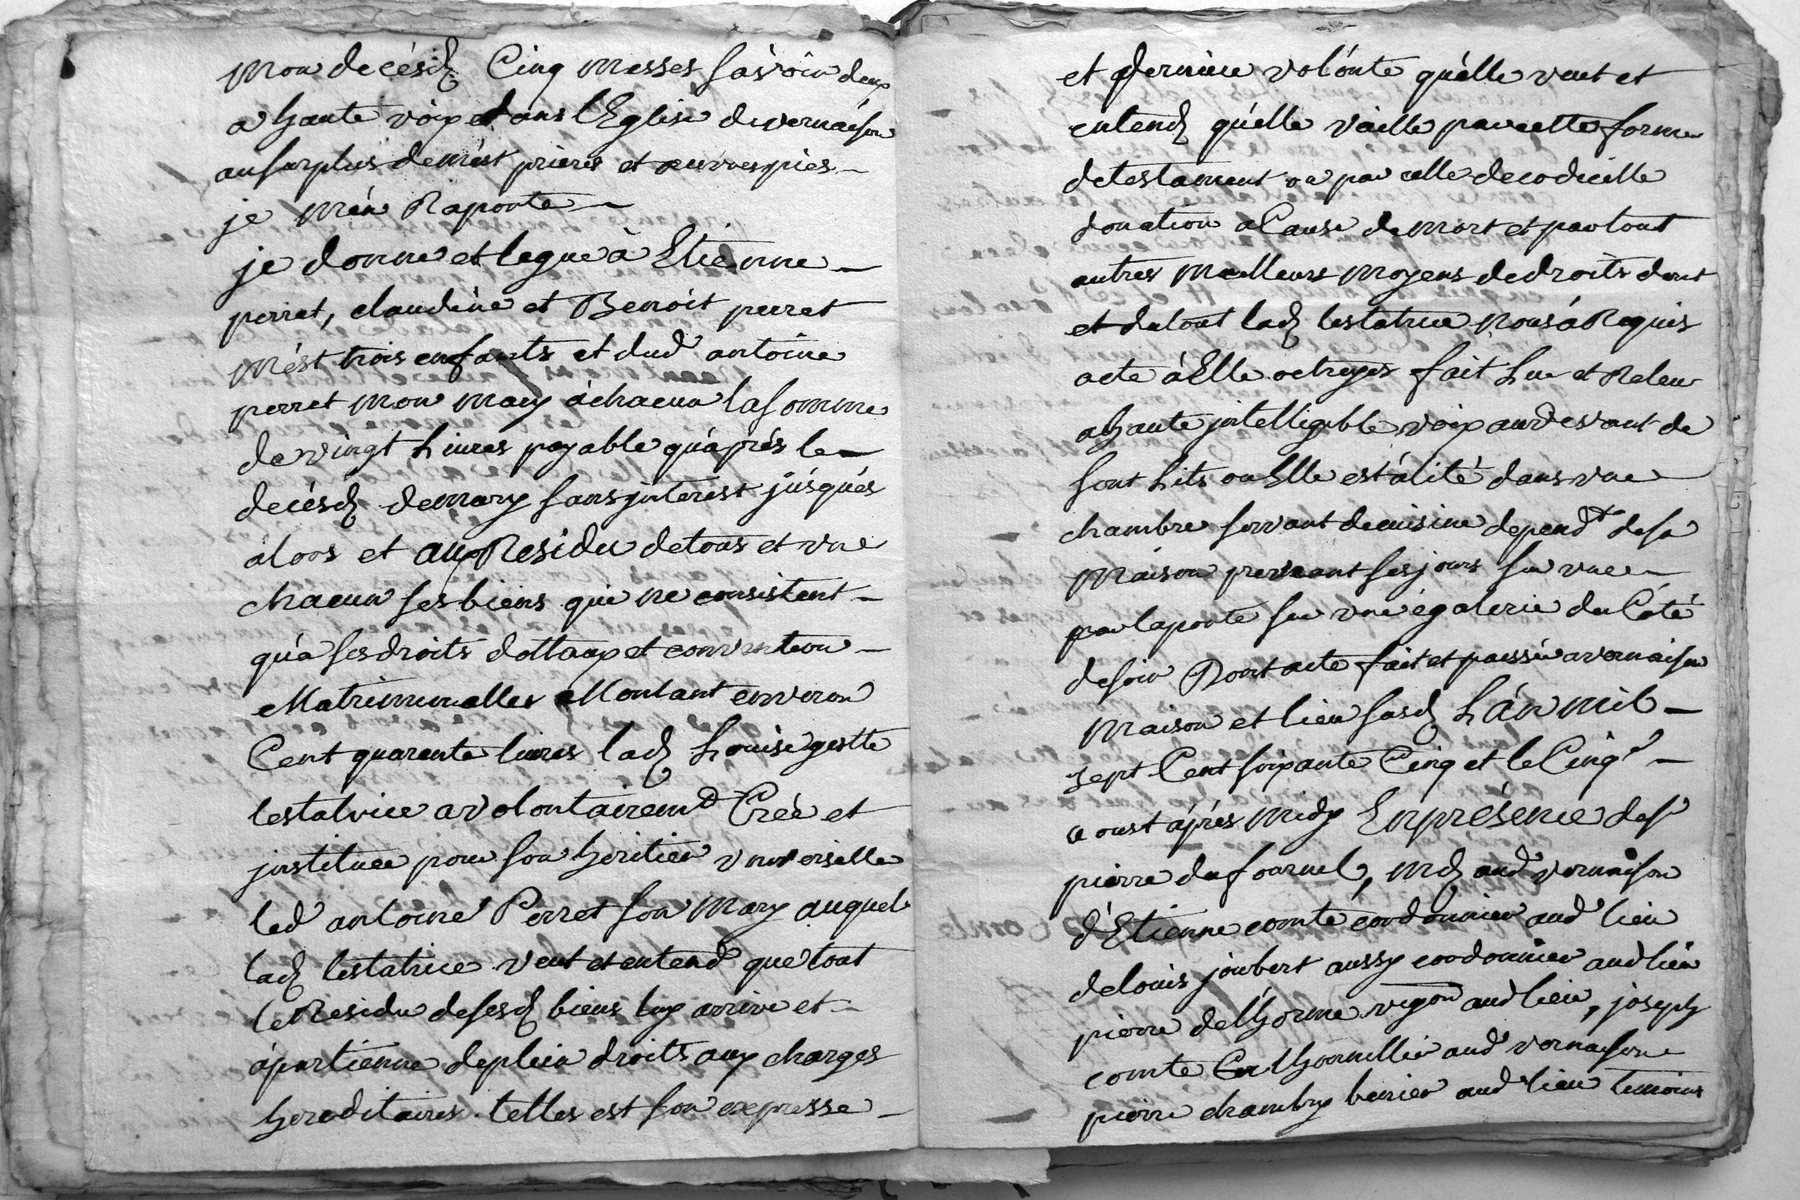 mon decésd Cinq messes sávoir deux
a haute voix dans l'Eglise de vernaison
au surplus de més prieres et oeuvres pies
je mén Raporte
je donne et legue à Etienne
perret, claudine et Benoit perret
més trois enfants et dud antoine
perret mon mary à chacun la somme
de vingt Livres payable qu'aprés le
decésd de mary sans jnterest jusqués
álors et au Residu de tous et vn
chacun ses biens qui ne consistent
qu'a ses droits dottaux et convention
Matrimonialles Montant environ
Cent quarente livres lad Louise
testatrice a volontairemt Creé et
jnstituée pour son heritier vniverselle
led antoine Perret son mary auquel
lad testatrice veut et entend que tout
le Residu de sesd biens luy arrive et
ápartienne de plein droits aux charges
hereditaires. telles est son expresse
et derniere volónté qu'elle veut et
entend qu'elle vaille par cette forme
de testament ou par celle de codicille
donation a Cause de mort et par tout
autres meilleurs moyens de droits dont
et du tout lad testatrice nous á Requis
acte á Elle octroyer fait Lu et Releu
a haute jntelligible voix au devant de
sont Lits ou Elle est álité dans vne
chambre servant de cuisine dependt de sa
Maison prenant ses jours sur vne
par la porte sur vne galerie du Coté
de soir Dont acte fait et passé a vernaison
maison et lieu susd L'án mil
sept Cent soixante Cinq et le Cinq
aoust áprés midy En présence de sr
pierre dufournel, md aud vernaison
d'Etienne comte cordonnier aud lieu
de louis joubert aussy cordonnier aud lieu
pierre delhorme vigon aud lieu, joseph
comte aud vernaison
pierre chambry aud lieu temoins